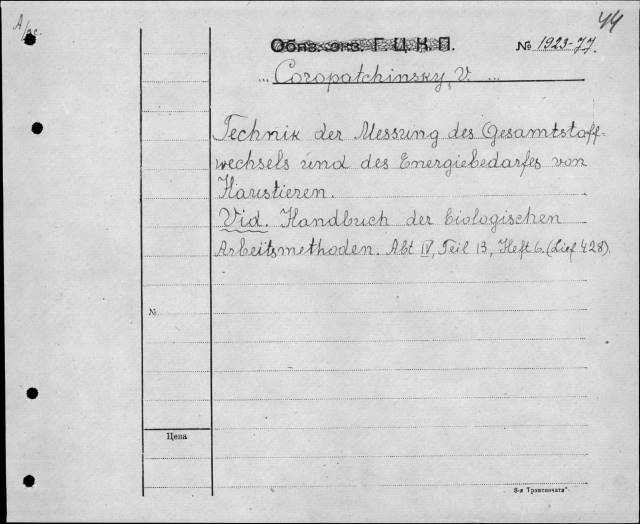 44
Обяз. экз. Г. Ц. К. П.
№ 1923-77.
Coropatchinsky, V.
Technik der Messung des Gesamtstoff-
wechsels und des Energiebedarfes von
Haustieren.
Vid. Handbuch der biologischen
Arbeitsmethoden. Abt IV, Teil 13, Heft 6. (Lief 428).
№
Цена